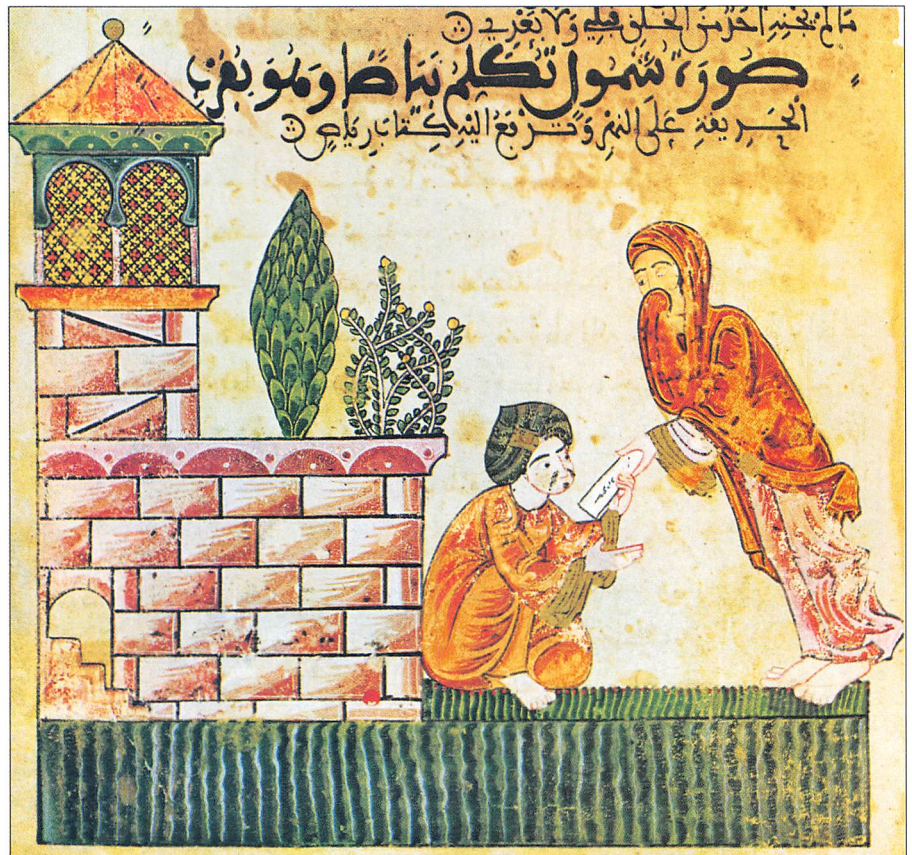 ما لم يجنه احد من الخلق قبلي ولا بعدي
صورة شمول تكلم بياض وهو بقرب
الحديقة على النهر وتدفع اليه كتاب رياض